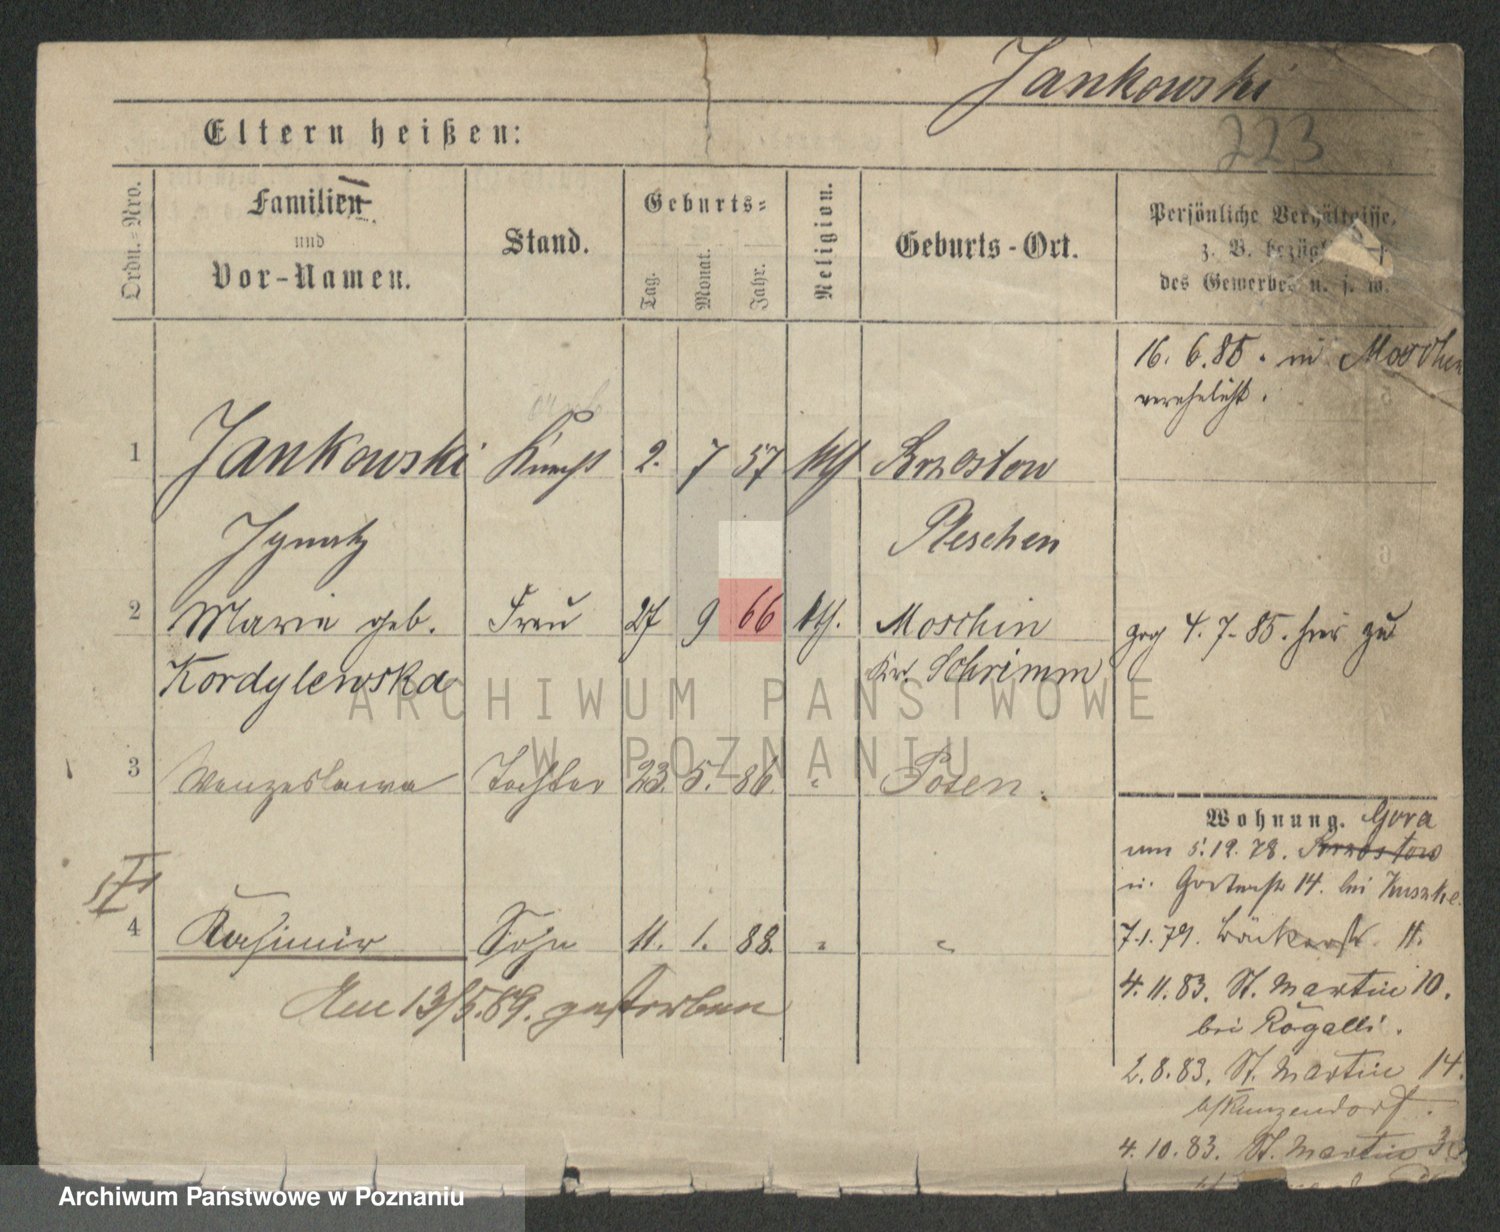 Jankowski
223
Eltern heißen:
Ordn.=Nro.
Familien
und
Vor-Namen.
Stand.
Geburts=
Tag.
Monat.
Jahr.
Religion.
Geburts-Ort.
Persönliche Verhältnisse,
z. B. bezügl
des Gewerbes u. s. w.
16. 6. 85. in Moschin
verehelicht.
1 Jankowski Knecht 2. 7 57 kth Krzostow
Ignatz Pleschen
2 Marie geb. Frau 27 9 66 kth. Moschin
Kordylewska Kr. Schrimm
gzg 4. 7. 85. hier zu
3 Wenzeslawa Tochter 23. 5. 86. " Posen.
4 Kasimir Sohn 11. 1. 88. " "
Am 13/5.89. gestorben
Wohnung. Gora
5.12.78. Krzostow
14. bei
7.1.79. Bäckerstr. 11.
4.11.83. St. Martin 10.
bei Rogalli.
2.8.83. St. Martin 14.
b/Kunzendorf.
4.10.83. St. Martin
ARCHIWUM PAŃSTWOWE
W POZNANIU
Archiwum Państwowe w Poznaniu